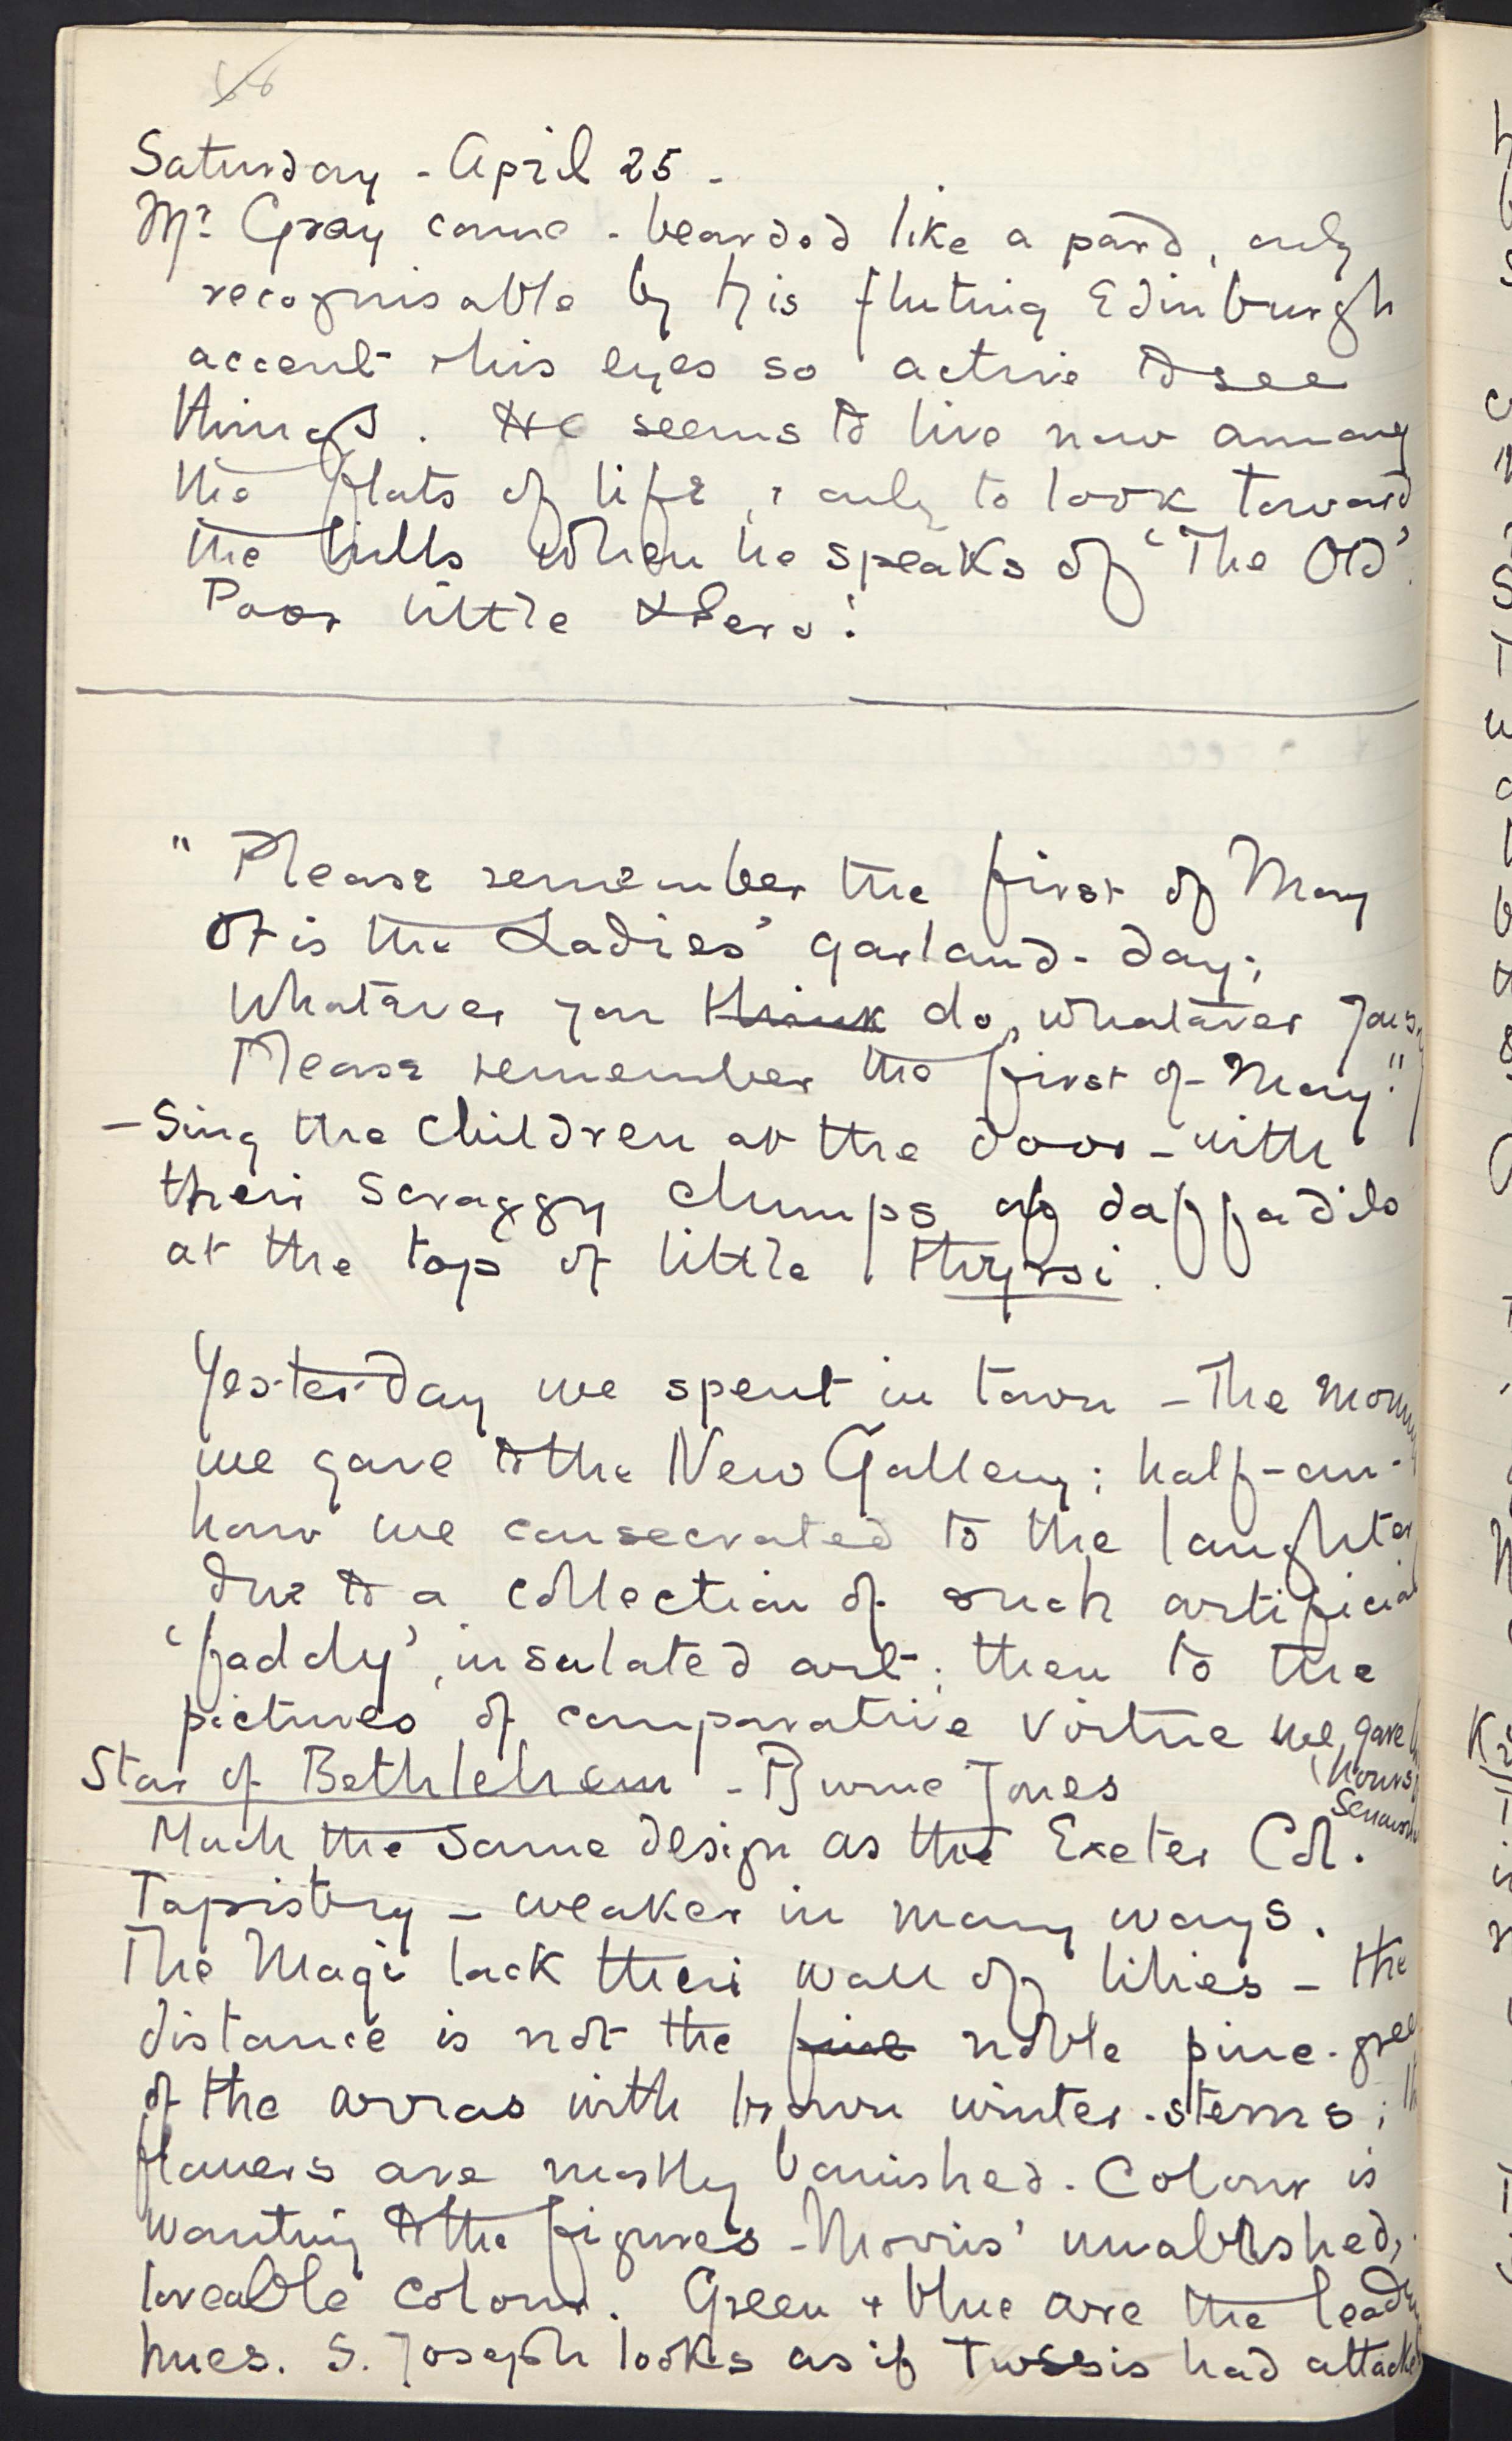 Saturday - April 25 -
Mr Gray came - bearded like a pard, only
recognisable by his fluting Edinburgh
accent & his eyes so active to see
things. He seems to live now among
the flats of life, & only to look toward
the hills when he speaks of 'The Old'.
Poor little Hero!
" Please remember the first of May
It is the Ladies' garland-day;
Whatever you think do, whatever you say
Please remember the first of May."
- Sing the children at the door - with
their scraggy clumps of daffodils
at the top of little thyrsi.
Yesterday we spent in town - The morning
we gave to the New Gallery; half-an-
hour we consecrated to the laughter
due to a collection of such artificial
'faddy', insulated art; then to the
pictures of comparative virtue we gave
hours
Star of Bethlehem - Burne Jones
Much the same design as the Exeter Col.
Tapistry - weaker in many ways.
The Magi lack their wall of lilies - the
distance is not the fine noble pine-green
of the arras with brown winter-stems; the
flowers are mostly banished. Colour is
wanting to the figures - Morris' unabashed,
loveable colour. Green & blue are the leading
hues. S. Joseph looks as if Tussis had attacked